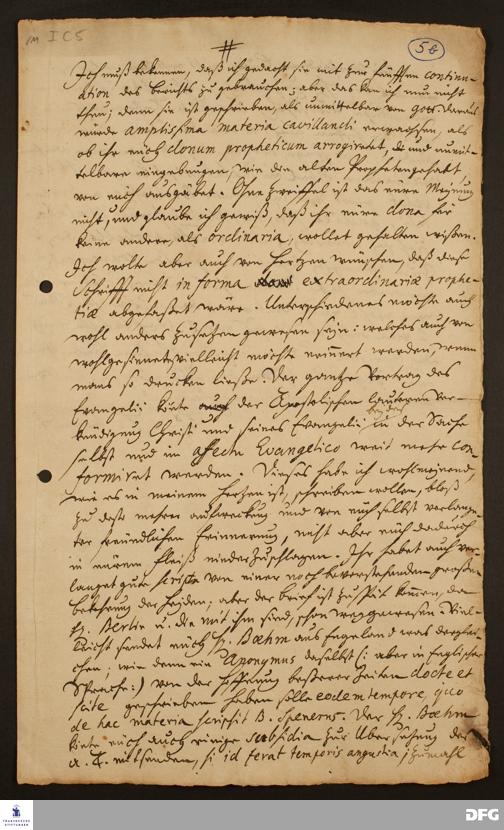 IM I C 5
#
56
Ich muß bekennen, daß ich gedacht sie mit zur fünfften continu-
ation des Berichts zu gebrauchen; aber das kan ich nun nicht
thun; denn sie ist geschrieben, als unmittelbar von Gott. Daraus
würde amplissima materia cavillandi erwachsen, als
ob ihr euch donum propheticum arrogiretet, und unmit-
telbare eingebungen, wie die alten Propheten gehabt,
von euch ausgäbet. Ohne zweiffel ist das eure Meinung
nicht, und glaube ich gewiß, daß ihr eure dona für
keine andere, als ordinaria, wollet gehalten wißen.
Ich wolte aber auch von Hertzen wünschen, daß diese
Schrifft nicht in forma extraordinariæ prophe-
tiæ abgefasset wäre. Unterschiedenes möchte auch
wohl anders zusetzen gewesen seyn: welches auch von
wohlgesinneten vielleicht möchte erinnert werden, wenn
mans so drucken ließe. Der gantze Vortrag des
Evangelii könte der Apostolischen lauteren Ver-
kündigung Christi und seines Evangelii in der Sache
selbst und im affectu Evangelico weit mehr con-
formiret werden. Dieses habe ich wohlmeinend,
wie es in meinem Hertzen ist, schreiben wollen, bloß
zu desto mehrer aufweckung und von euch selbst verlang-
ter freündlichen Erinnerung, nicht aber euch dadurch
in eurem fleiß niederzuschlagen. Ihr habet auch ver-
langet gute scripta von einer noch bevorstehenden großen
bekehrung der Heyden; aber der brief ist zu spät kommen, da
H. Berlin u. die mit ihm sind, schon weggewesen. Viel-
leicht sendet euch H. Bœhm aus Engeland was derglei-
chen; wie denn ein Anonymus daselbst (: aber in Englischer
Sprache:) von der Hoffnung besserer Zeiten docte et
scite geschrieben haben solle eodem tempore, quo
de hac materia scripsit B. Spenerus. Der H. Bœhm
könte euch auch einige subsidia zur Übersetzung des
N. T. mitsenden, si id ferat temporis angustia; zumahl
FRANCKESCHE STIFTUNGEN
DFG